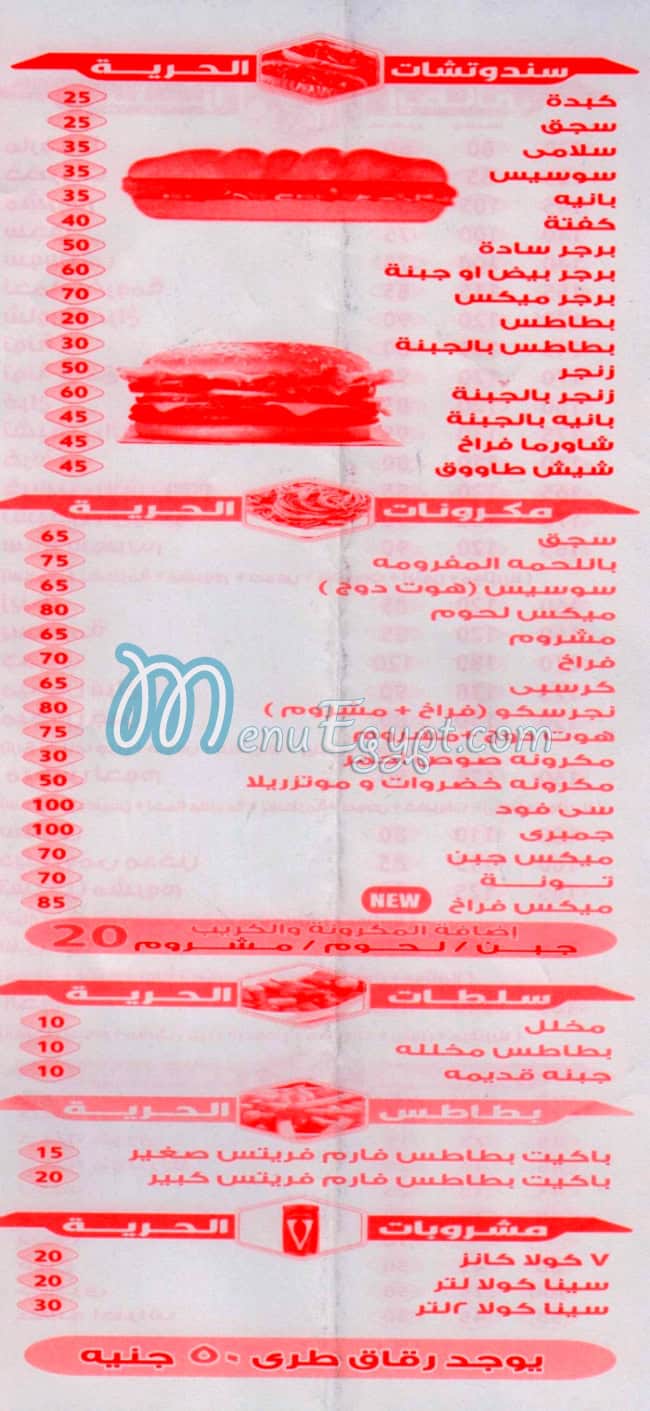 سندوتشات الحرية
كبدة 25
سجق 25
سلامى 35
سوسيس 35
بانيه 35
كفتة 40
برجر سادة 50
برجر بيض او جبنة 60
برجر ميكس 70
بطاطس 20
بطاطس بالجبنة 30
زنجر 50
زنجر بالجبنة 60
بانيه بالجبنة 45
شاورما فراخ 45
شيش طاووق 45
مكرونات الحرية
سجق 65
باللحمه المفرومه 75
سوسيس (هوت دوج ) 65
ميكس لحوم 80
مشروم 65
فراخ 70
كرسبى 65
نجرسكو (فراخ + مشروم ) 80
هوت دوج + مشروم 75
مكرونه صوص احمر 30
مكرونه خضروات و موتزريلا 50
سى فود 100
جمبرى 100
ميكس جبن 70
تونة 70
ميكس فراخ NEW 85
MenuEgypt.com
إضافة المكرونة والكريب
جبن / لحوم / مشروم 20
سلطات الحرية
مخلل 10
بطاطس مخلله 10
جبنه قديمه 10
بطاطس الحرية
باكيت بطاطس فارم فريتس صغير 15
باكيت بطاطس فارم فريتس كبير 20
مشروبات الحرية
٧ كولا كانز 20
سينا كولا لتر 20
سينا كولا ٢لتر 30
يوجد رقاق طرى ٥٠ جنيه